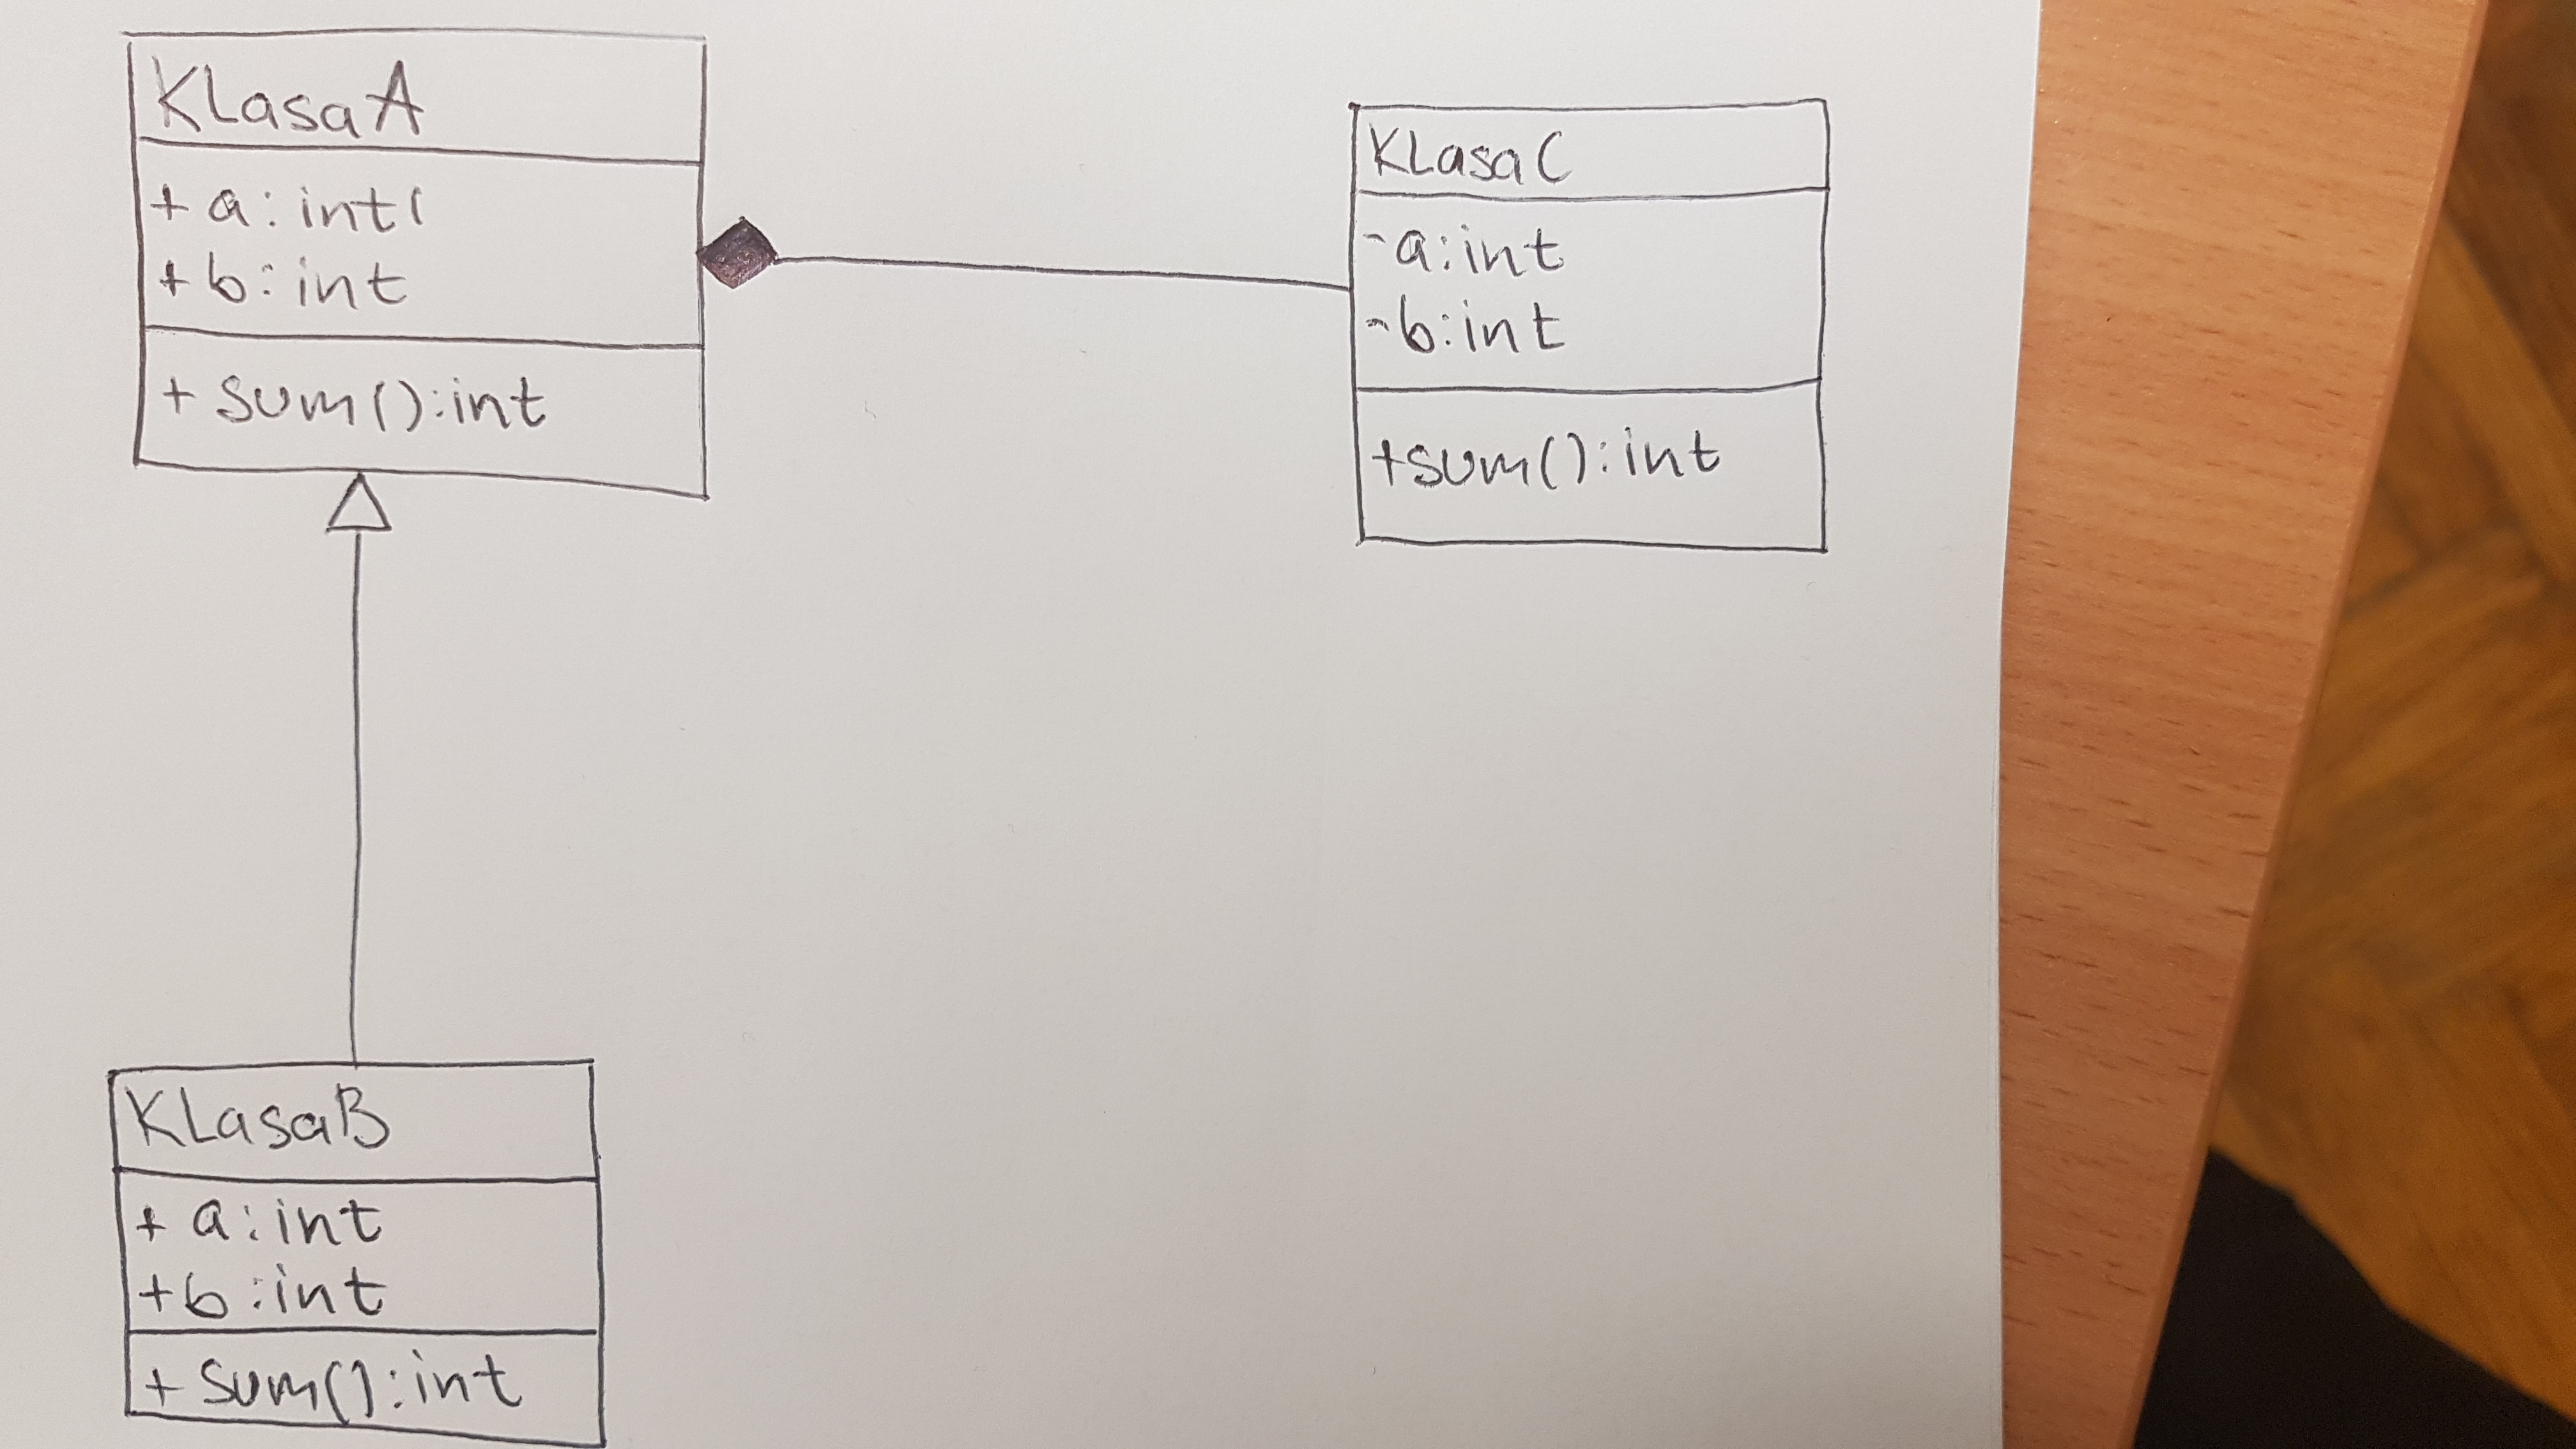 KLasaA
+ a: int(
+ b: int
+ sum():int
KLasaC
-a:int
-b:int
+sum():int
KLasaB
+ a:int
+b:int
+ sum():int